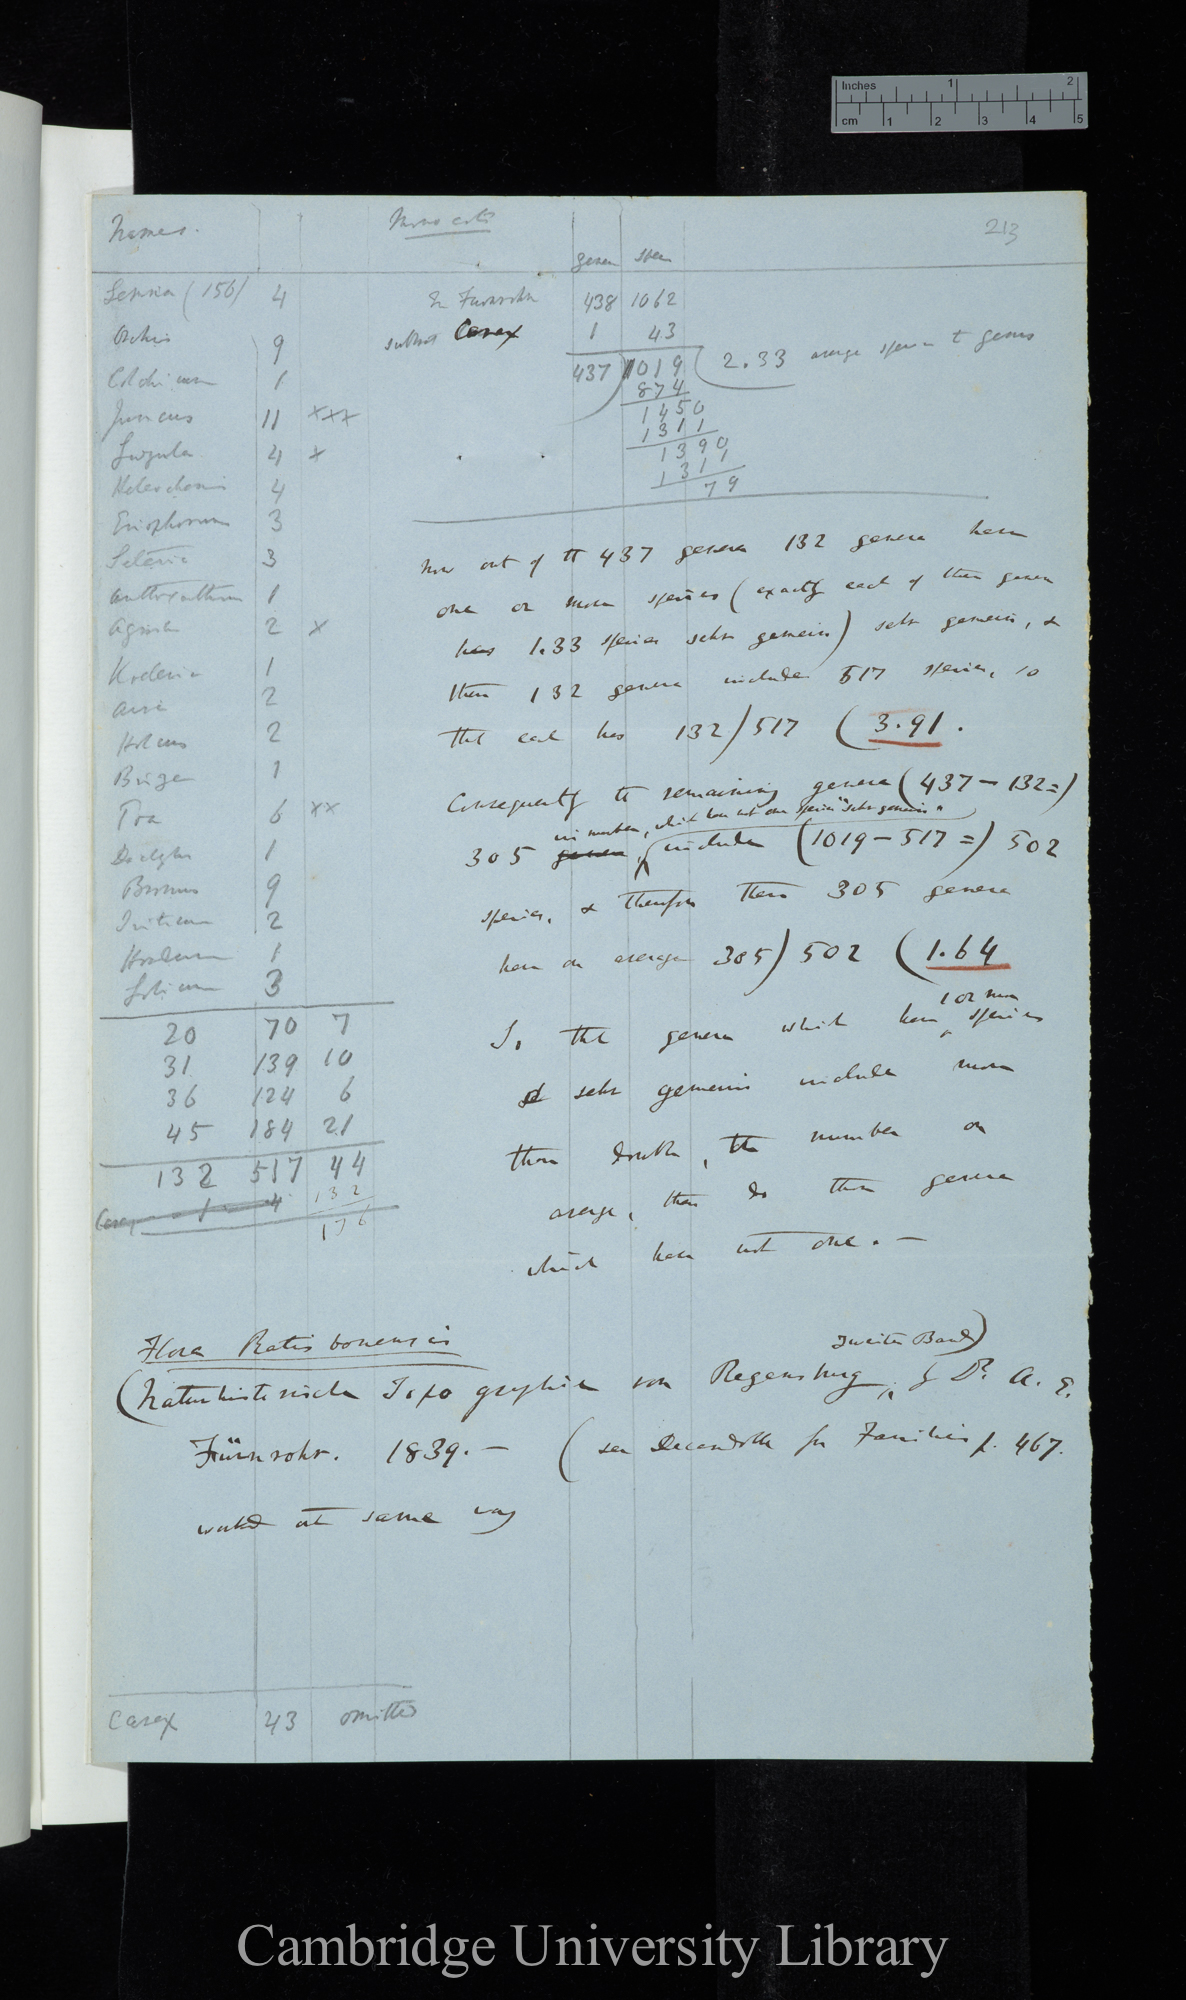 Inches 1 2
cm 1 2 3 4 5
213
Names.
Monocots
genera species
Lemna (156) 4
Orchis 9
Colchicum 1
Juncus 11 xxx
Luzula 4 x
Heleocharis 4
Eriophorum 3
Seteria 3
Anthoxanthum 1
Agrostis 2 x
Koeleria 1
Aira 2
Holcus 2
Briza 1
Poa 6 xx
Dactylis 1
Bromus 9
Triticum 2
Hordeum 1
Lolium 3
20 70 7
31 139 10
36 124 6
45 184 21
132 517 44
Carex 1 4 132
176
In Furnrohr 438 1062
subtract Carex 1 43
437) 1019 (2.33 average species to genus
874
1450
1311
1390
1311
79
Now out of the 437 genera 132 genera have
one or more species (exactly each of these genera
has 1.33 species sehr gemein) sehr gemein, &
these 132 genera include 517 species, so
that each has 132) 517 (3.91.
Consequently the remaining genera (437 – 132 =)
in number, which have not one species "sehr gemein"
305 genera, include (1019 – 517 =) 502
species, & therefore these 305 genera
have on average 305) 502 (1.64
1 or more
So that genera which have species
sehr gemein include more
than double, the number on
average, than do those genera
which have not one. —
Flora Ratisbonensis
Zweiter Band)
(Naturhistorische Topographie von Regensburg, by Dr. A. E.
Fürnrohr. 1839. — (see Decandolle for Families p. 467.
worked out same way
Carex 43 omitted
Cambridge University Library